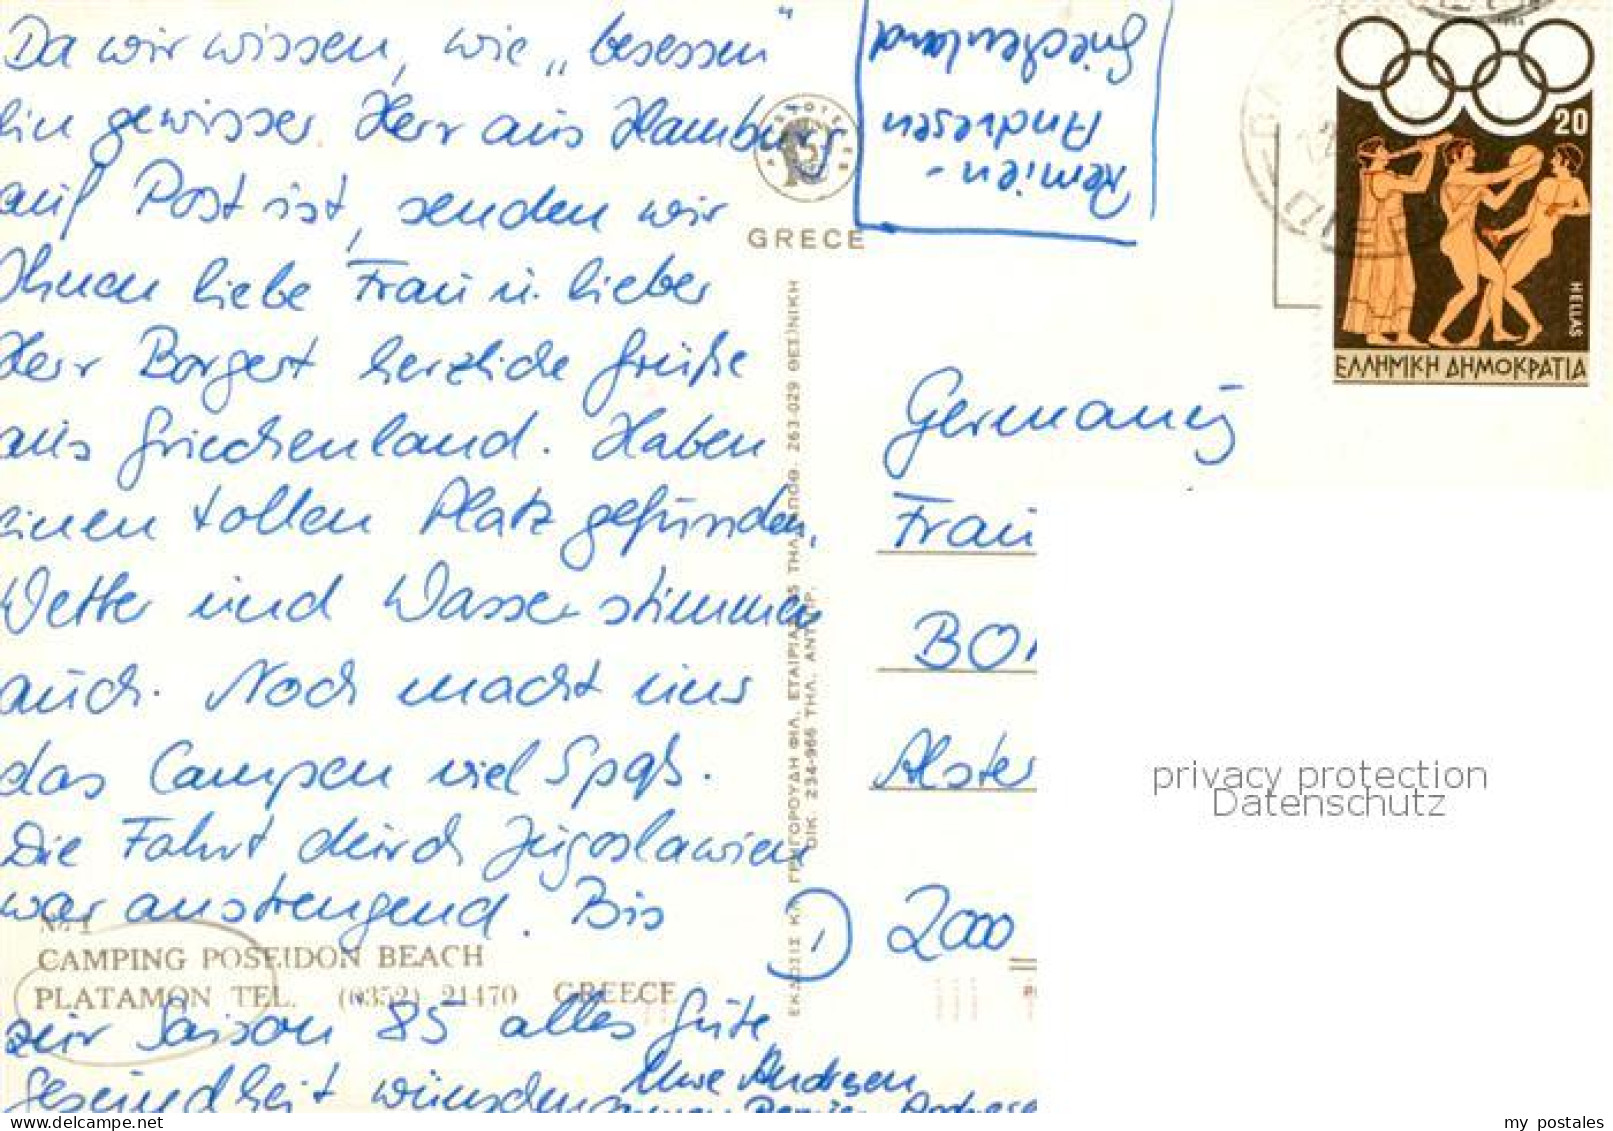 Da wir wissen, wie „besessen"
ein gewisser Herr aus Hamburg
auf Post ist, senden wir
Ihnen liebe Frau u. lieber
Herr Borgert herzliche Grüße
aus Griechenland. Haben
einen tollen Platz gefunden,
Wetter und Wasser stimmen
auch. Noch macht uns
das Campen viel Spaß.
Die Fahrt durch Jugoslawien
war anstrengend. Bis
No 1
CAMPING POSEIDON BEACH
PLATAMON TEL. (0352) 21470 GREECE
zur Saison 85 alles Gute
Gesundheit wünschen
Uwe Andresen
GRECE
ΕΚΔΟΣΙΣ ΚΛ. ΓΡΗΓΟΡΟΥΔΗ ΦΙΛ. ΕΤΑΙΡΙΑΣ ΤΗΛ. ΑΠΟΘ. 263-029 ΘΕΣ/ΝΙΚΗ
ΟΙΚ. 234-966 ΤΗΛ. ΑΝΤΙΠΡ.
Remien-
Andresen
Griechenland
20
HELLAS
ΕΛΛΗΜΙΚΗ ΔΗΜΟΚΡΑΤΙΑ
Germany
Frau
BO
Alster
D 2000
privacy protection
Datenschutz
my postales